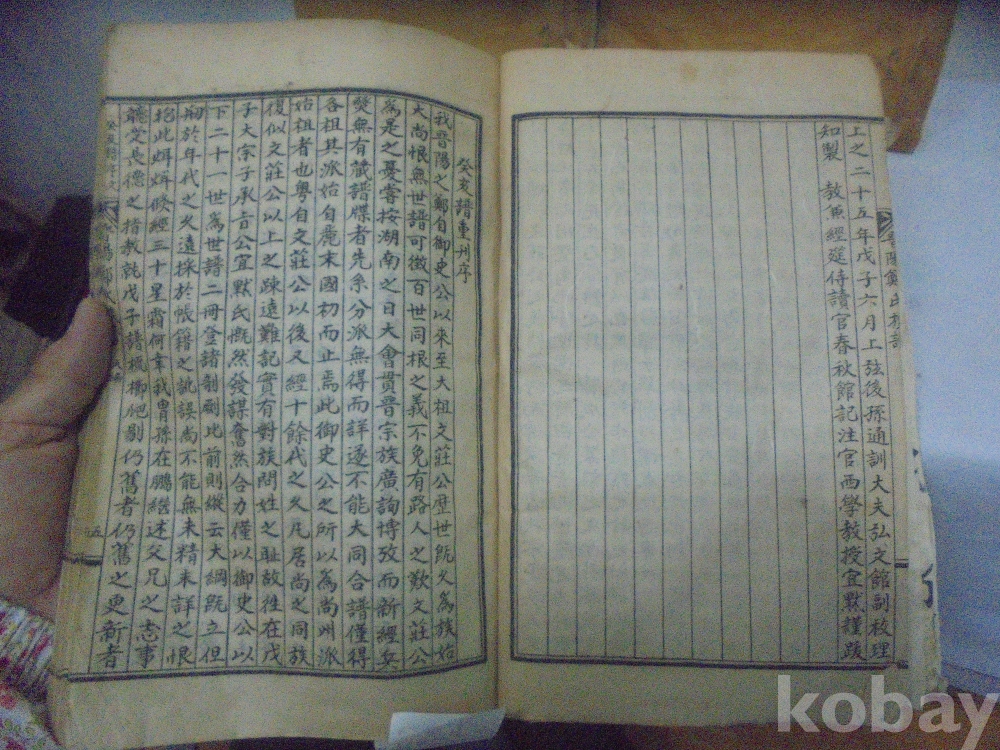 上之二十五年戊子六月上弦後孫通訓大夫弘文館副校理
知製 教兼經筵侍讀官春秋館記注官西學教授宜默謹跋
癸亥譜重刊序
我晉陽之鄭自御史公以來至大祖文莊公歷世旣久爲族始
大尚恨無世譜可徵百世同根之義不免有路人之歎文莊公
爲是之憂嘗按湖南之日大會貫晉宗族廣詢博攷而新經兵
燹無有藏譜牒者先系分派無得而詳遂不能大同合譜僅得
各祖其派始自麗末國初而止焉此御史公之所以爲尚州派
始祖者也粤自文莊公以後又經十餘代之久凡居尚之同族
復似文莊公以上之疎遠難記實有對族問姓之耻故往在戊
子大宗子承旨公宜默氏慨然發謀奮然合力僅以御史公以
下二十一世爲世譜二冊登諸剞劂比前則縱云大綱旣立但
病於年代之久遠採於帳籍之訛誤尚不能無未精未詳之恨
抱此
經三十星霜何幸我胄孫在鵬繼述父兄之志事
聽受長德之指教就戊子譜
仍舊者仍舊之更新者
kobay